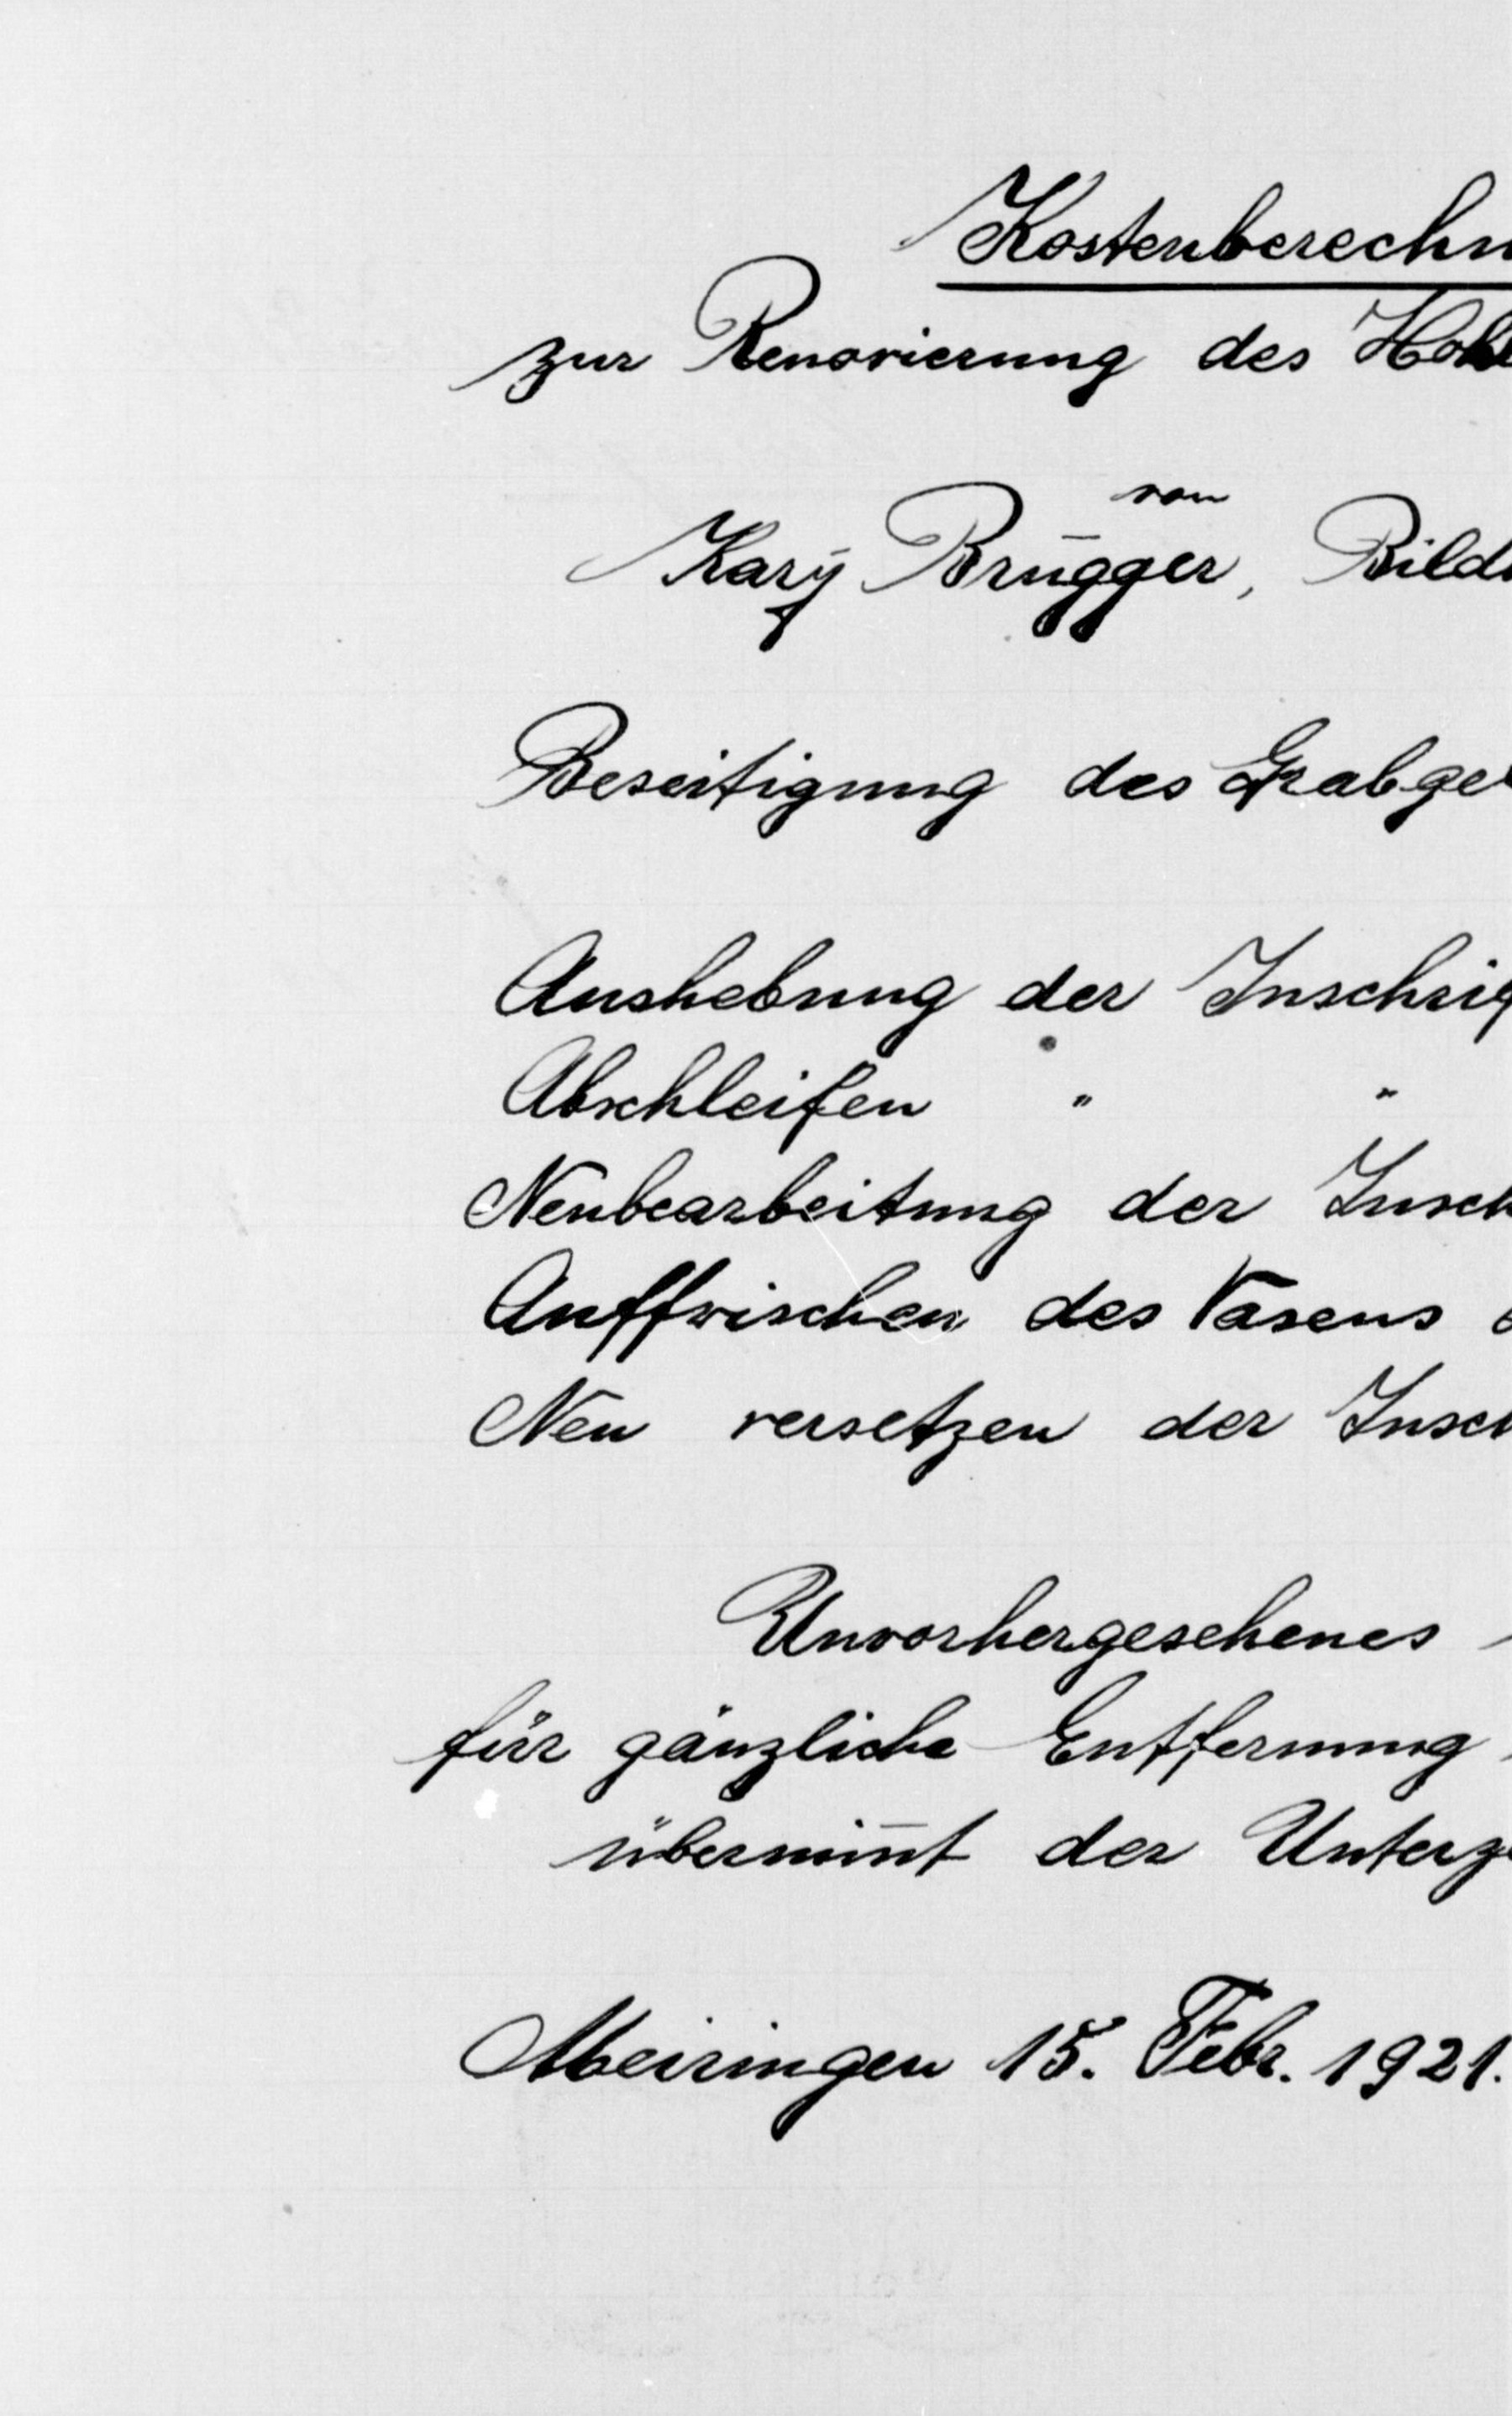 Kostenberechn
zur Renovierung des Hohl
von
Kary Brügger, Bildh
Beseitigung des Grabgel
Aushebung der Inschrif
Abschleifen " "
Neubearbeitung der Insch
Auffrischen des Vasens
Neu versetzen der Insch
Unvorhergesehenes
für gänzliche Entfernung
übernim̅t der Unterze
Meiringen 15. Febr. 1921.